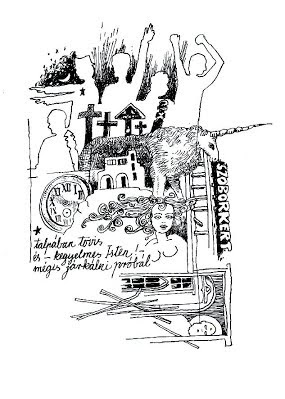 SZOBORKERT
talpában tövis
és – kegyelmes Isten! –
mégis járkálni próbál